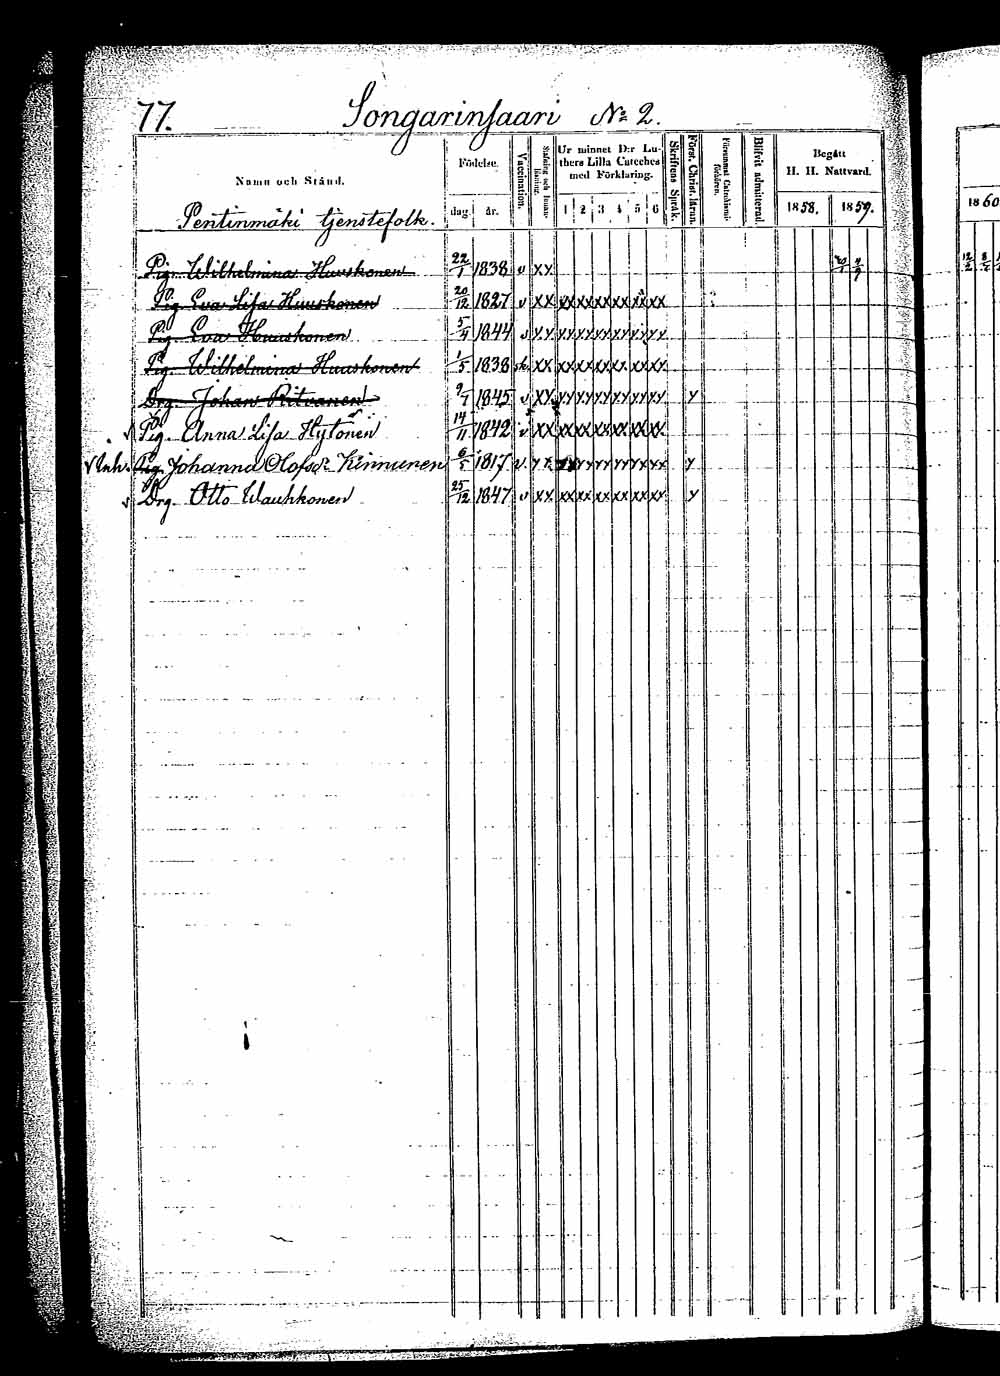 77. Songarinsaari No 2.
Namn och Stånd.
Födelse.
dag. år.
Vaccination.
Ur minnet D:r Luthers Lilla Cateches med Förklaring.
1 2 3 4 5 6
Skriftens Språk.
Först. Christ. läran.
Blifvit admitterad.
Begått H. H. Nattvard.
1858. 1859.
1860
Pentinmäki tjenstefolk.
Pig. Wilhelmina Huuskonen 22/1 1838 v xx
Pig. Eva Lisa Huuskonen 20/12 1827 v xx xx xx xx xx xx xx
Pig. Eva Huuskonen 5/4 1844 v xx xx xx xx xx xx xx
Pig. Wilhelmina Huuskonen 1/5 1838 xx xx xx xx xx xx xx
Drg. Johan Ritvanen 9/7 1845 v xx xx xx xx xx xx xx y
Pig. Anna Lisa Hytönen 14/11 1842 v xx xx xx xx xx xx xx
v Inh. Pig. Johanna Olofsdr Kinnunen 6/5 1817 v. y
v Drg. Otto Wauhkonen 25/12 1847 v xx xx xx xx xx xx xx y